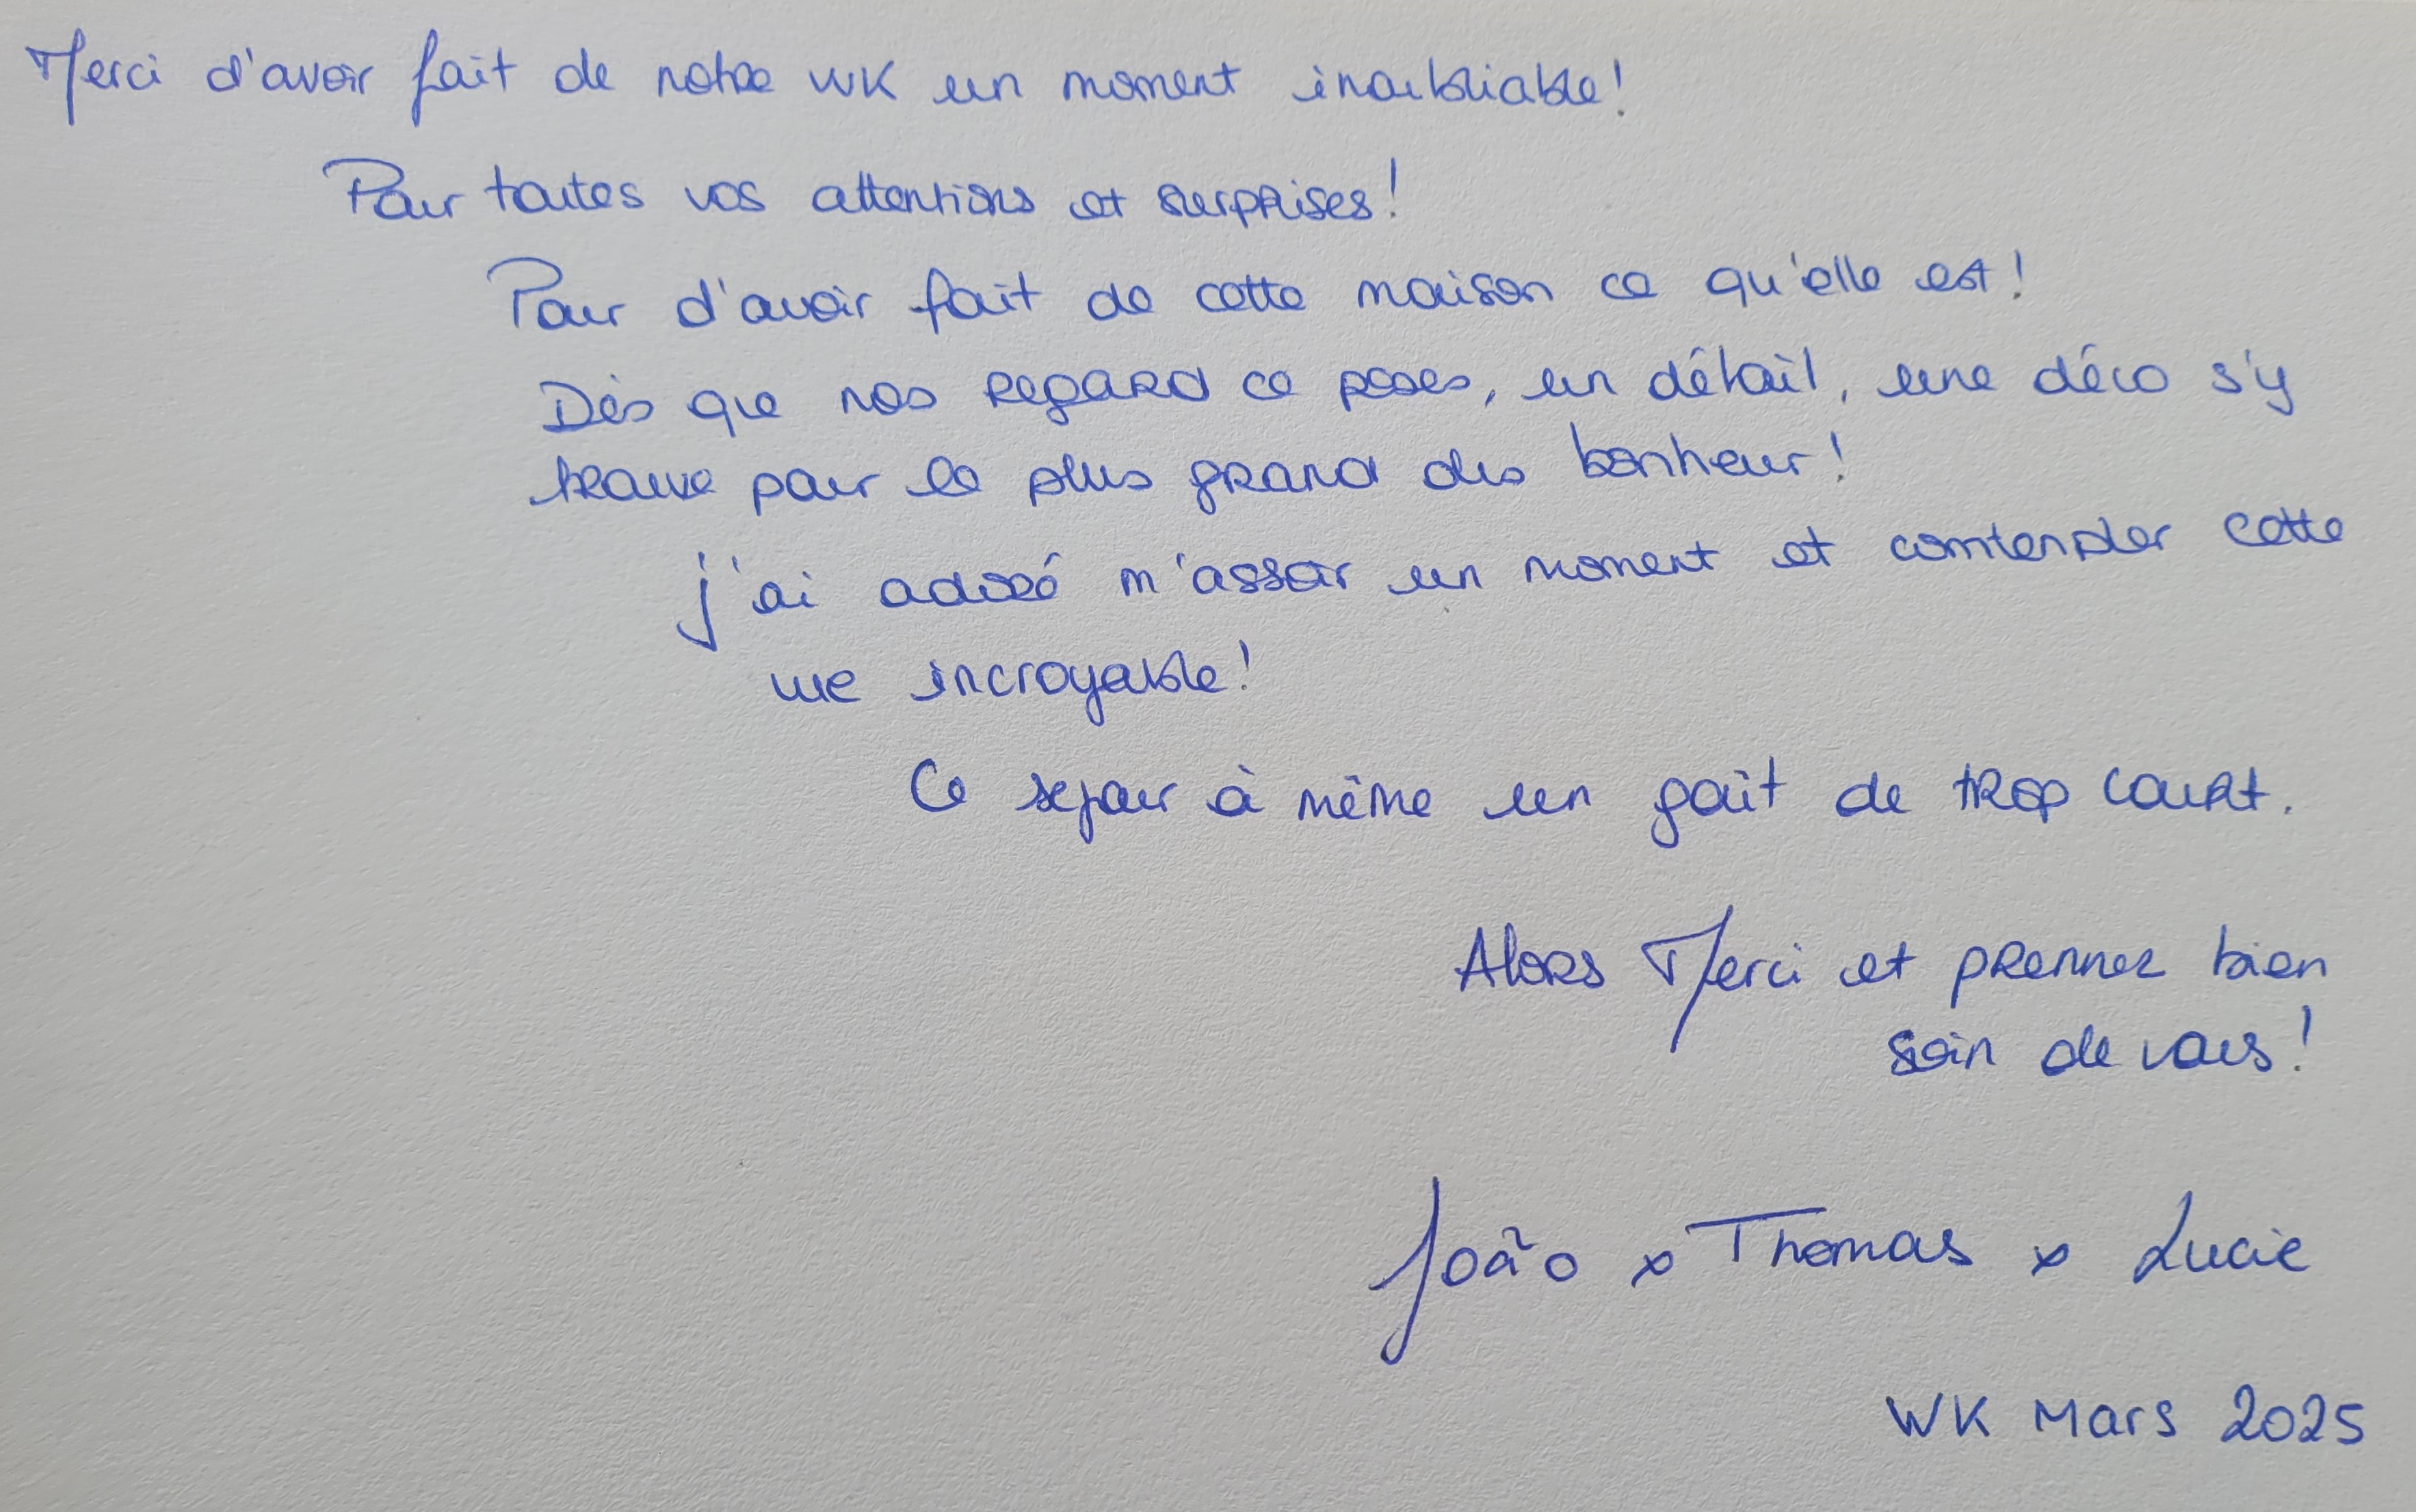 Merci d'avoir fait de notre WK un moment inoubliable!
Pour toutes vos attentions et surprises!
Pour d'avoir fait de cette maison ce qu'elle est!
Dès que nos regard ce poses, un détail, une déco s'y
trouve pour le plus grand des bonheur!
j'ai adoré m'assoir un moment et comtempler cette
vue incroyable!
Ce sejour à même un gait de trop court.
Alors Merci et prennez bien
soin de vous!
João x Thomas x Lucie
WK Mars 2025